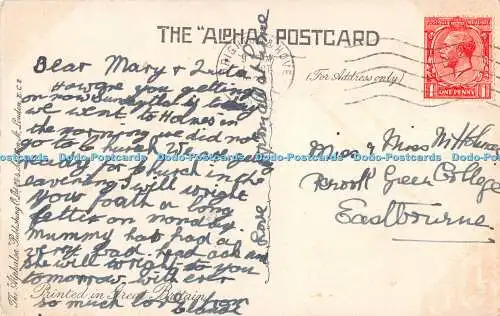 THE "ALPHA" POSTCARD
HOVE
(For Address only)
ONE PENNY
Dear Mary &
How are you getting
on now Sunday today
we went to in
the morning we did not
go to church We
for church in the
evening I will wright
you a long
letter on monday.
Mummy has had a
very bad head ack and
she will wright to you
tomorrow. with ever
so much love from
love from all at home
Miss & Miss M
Green College
Eastbourne
Printed in Great Britain
The Alphalsa Publishing Co. London, E.C.2
Dodo-Postcards Dodo-Postcards Dodo-Postcards Dodo-Postcards Dodo-Postcards